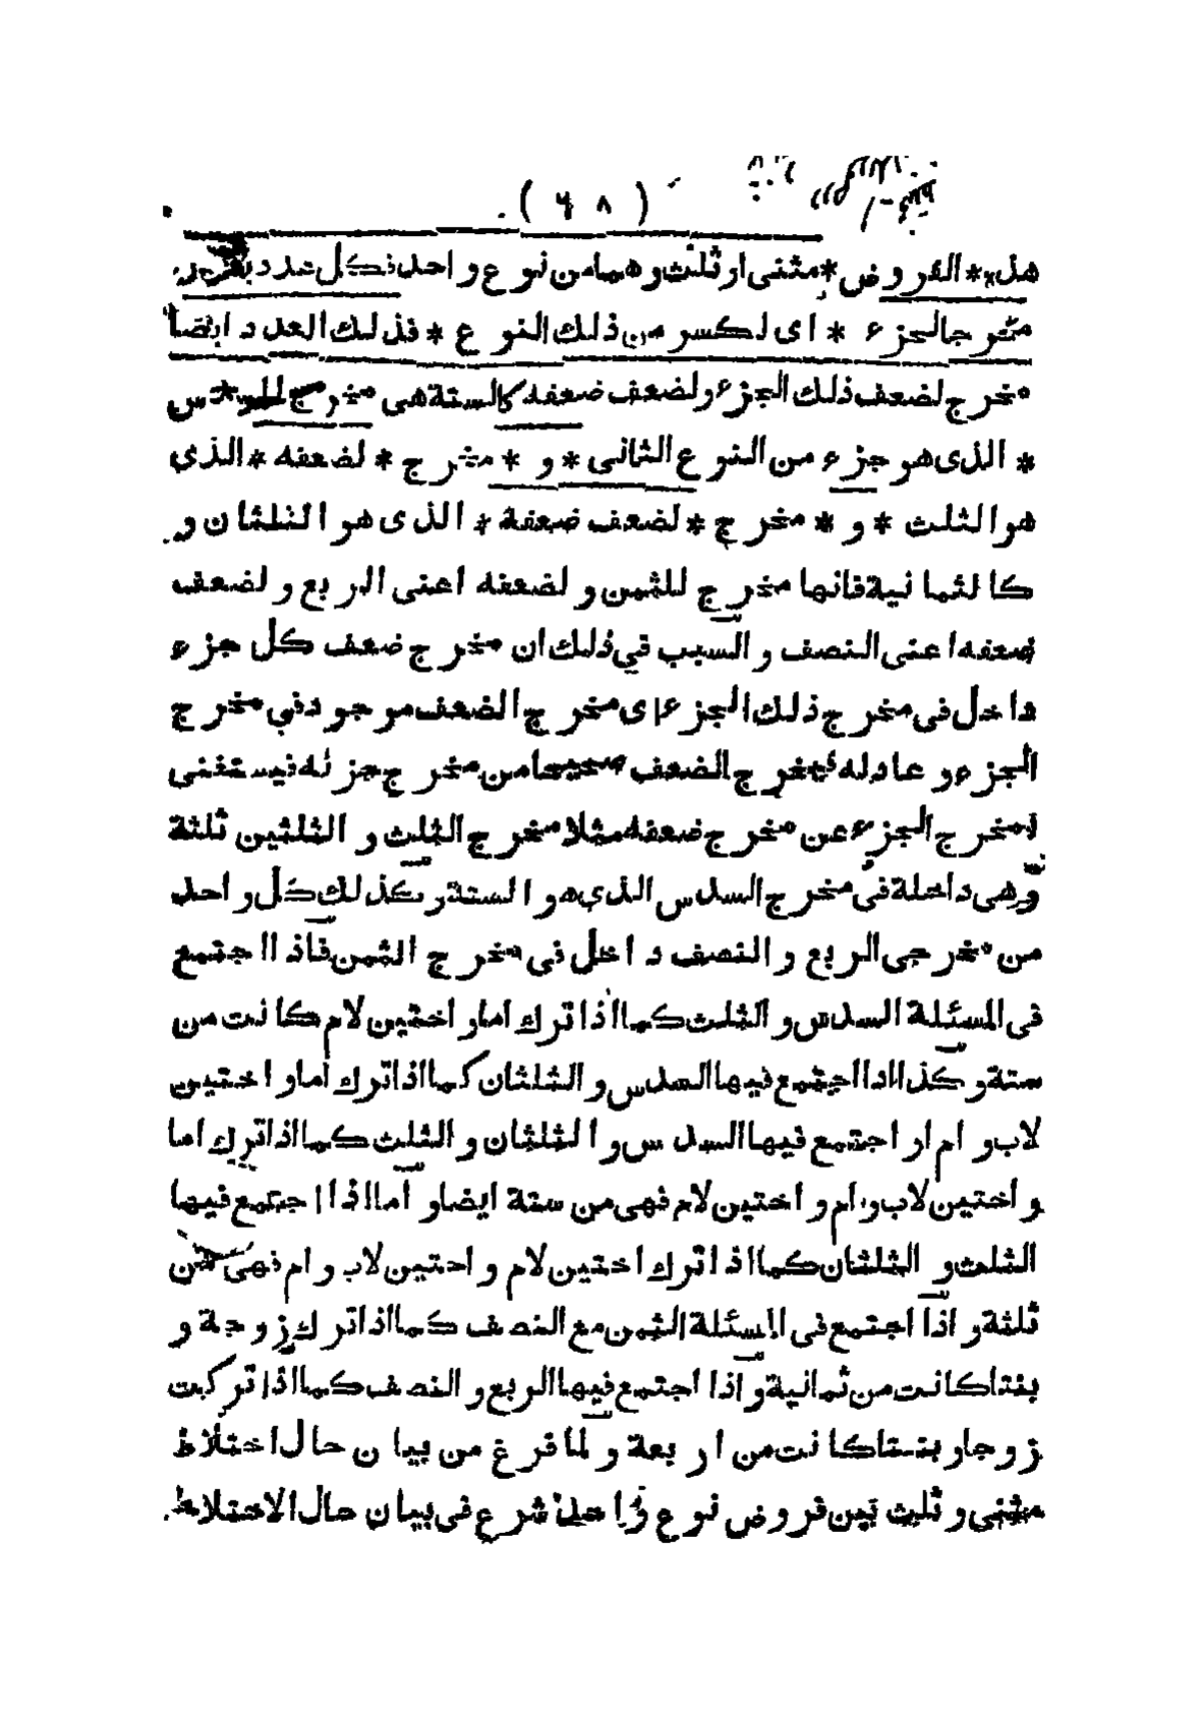 ( ٦٨ )
هذه * الفروض * مثنى او ثلث وهما من نوع واحد فكل عدد يكون
مخرجا لجزء * اى لكسر من ذلك النوع * فذلك العدد ايضا
مخرج لضعف ذلك الجزء ولضعف ضعفه كالستة هى مخرج للسدس
* الذى هو جزء من النوع الثانى * و * مخرج * لضعفه * الذى
هو الثلث * و * مخرج * لضعف ضعفه * الذى هو الثلثان و
كالثمانية فانها مخرج للثمن ولضعفه اعنى الربع ولضعف
ضعفه اعنى النصف والسبب فى ذلك ان مخرج ضعف كل جزء
داخل فى مخرج ذلك الجزء اى مخرج الضعف موجود فى مخرج
الجزء وعادله فيخرج الضعف صحيحا من مخرج جزئه فيستغنى
لمخرج الجزء عن مخرج ضعفه مثلا مخرج الثلث والثلثين ثلثة
وهى داخلة فى مخرج السدس الذى هو الستة وكذلك كل واحد
من مخرجى الربع والنصف داخل فى مخرج الثمن فاذا اجتمع
فى المسئلة السدس والثلث كما اذا ترك اما واختين لام كانت من
ستة وكذا اذا اجتمع فيها السدس والثلثان كما اذا ترك اما واختين
لاب و ام او اجتمع فيها السدس والثلثان والثلث كما اذا ترك اما
واختين لاب و ام واختين لام فهى من ستة ايضا و اما اذا اجتمع فيها
الثلث والثلثان كما اذا ترك اختين لام واختين لاب و ام فهى من
ثلثة واذا اجتمع فى المسئلة الثمن مع النصف كما اذا ترك زوجة و
بنتا كانت من ثمانية واذا اجتمع فيها الربع والنصف كما اذا تركت
زوجا وبنتا كانت من اربعة ولما فرغ من بيان حال اختلاط
مثنى وثلث بين فروض نوع واحد شرع فى بيان حال الاختلاط